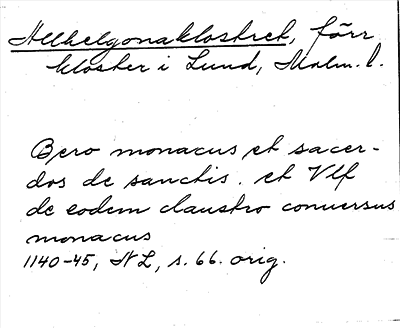 Allhelgonaklostret, förr
kloster i Lund, Malm. l.
Bero monacus et sacer-
dos de sanctis. et Vlf
de eodem claustro conuersus
monacus
1140-45, NL, s. 66. orig.